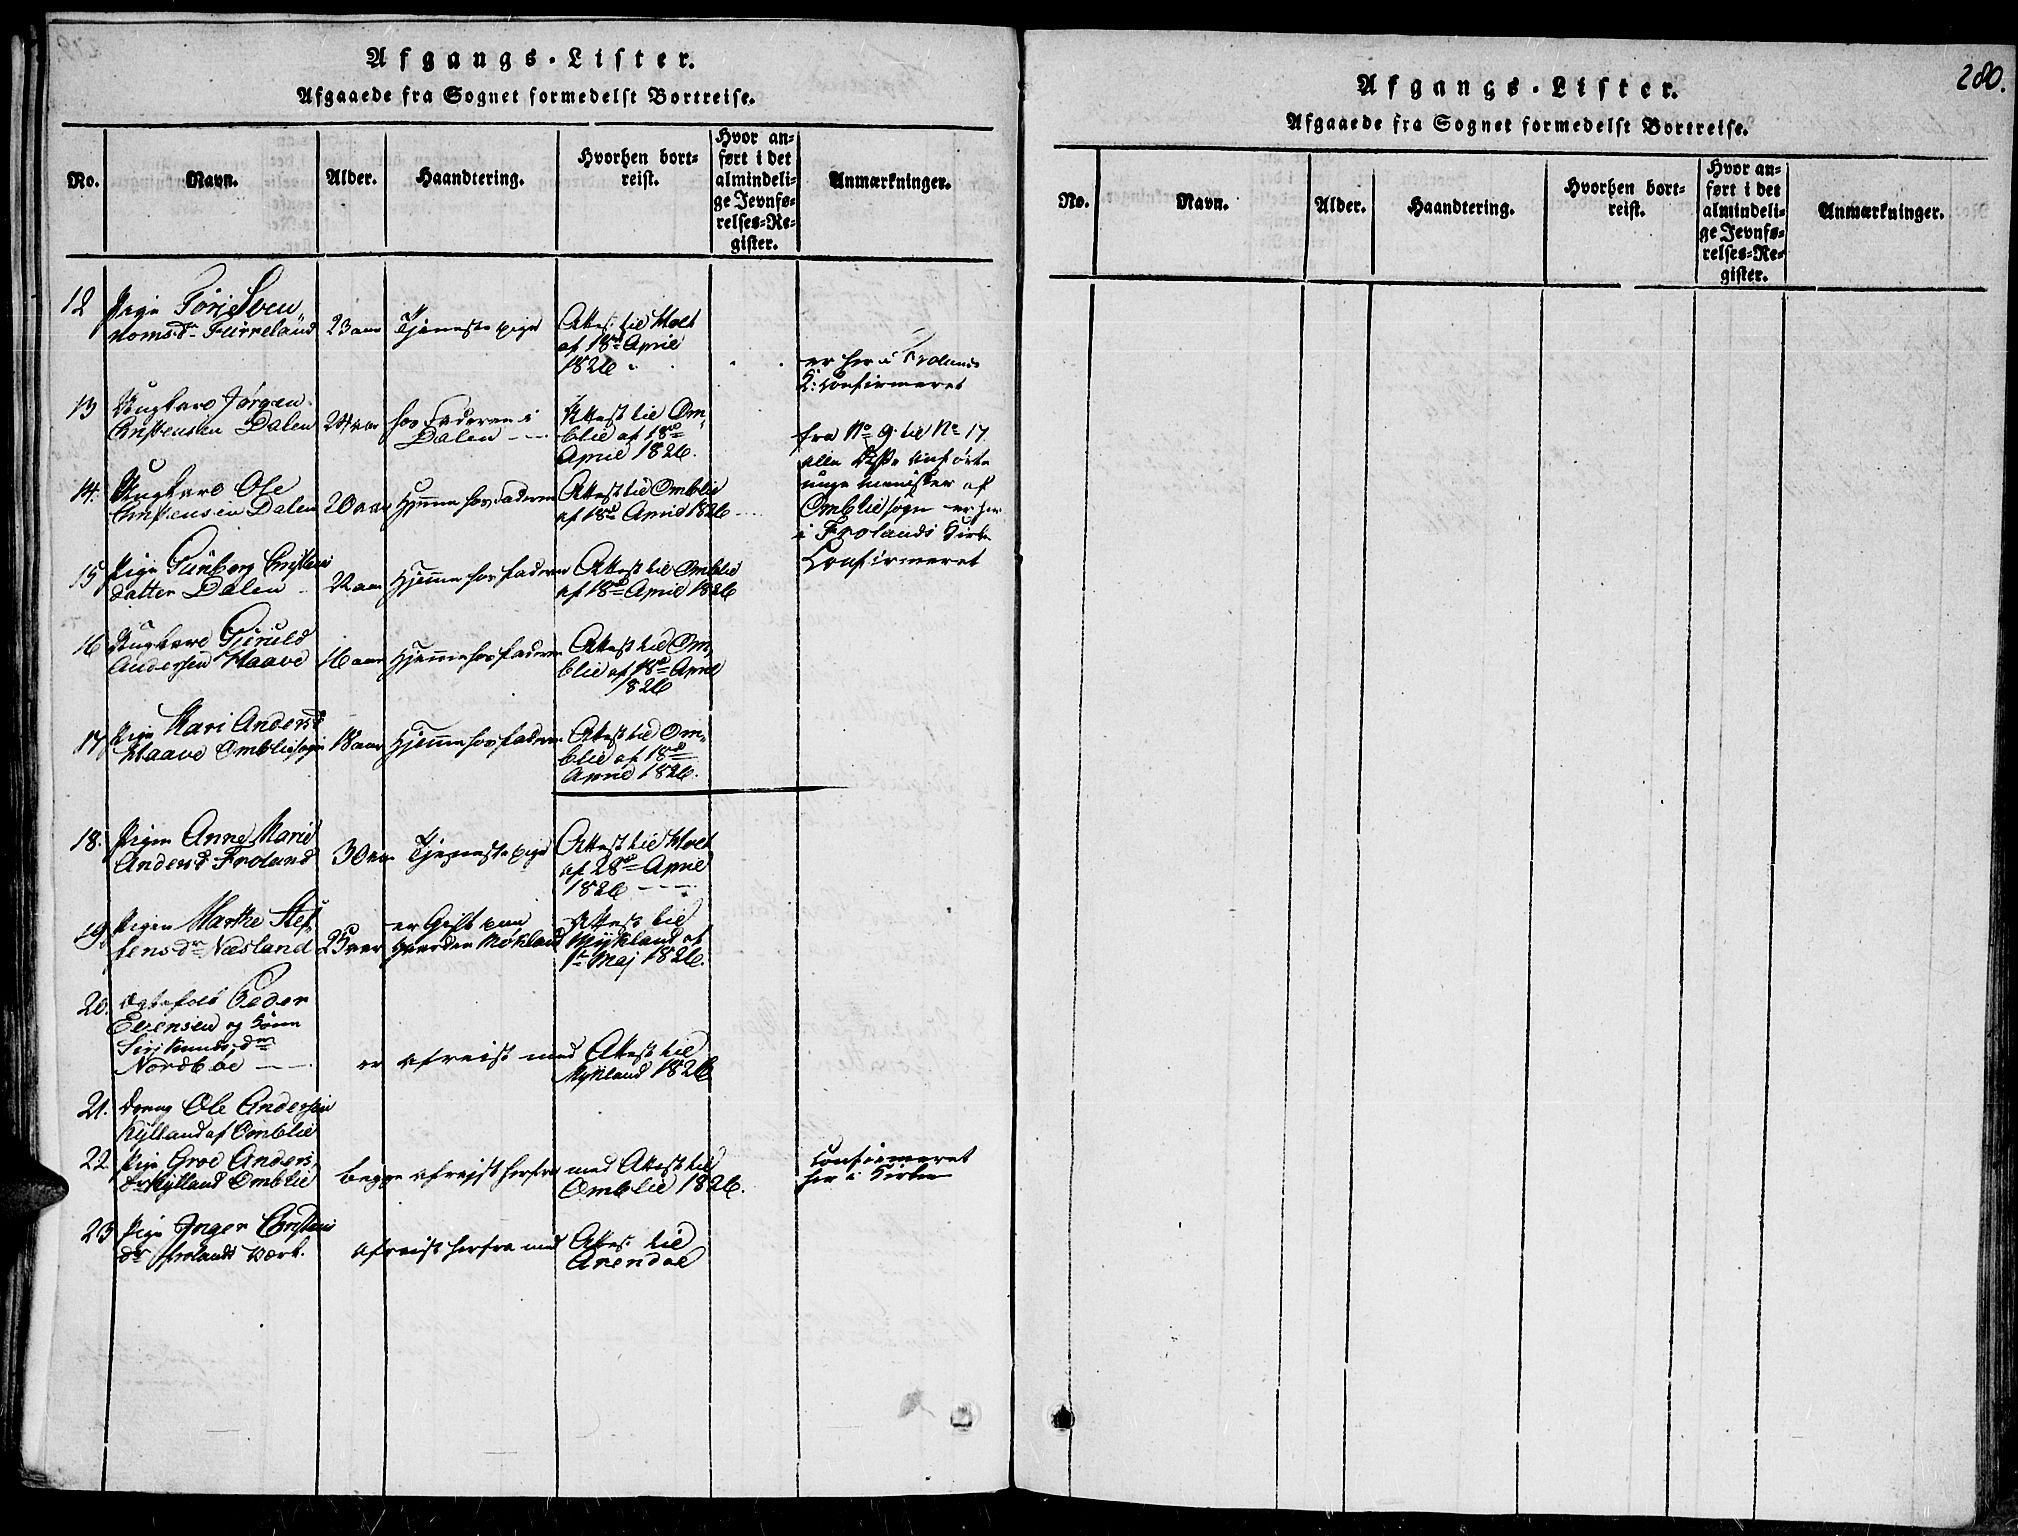 Afgangs-Lister.
Afgaaede fra Sognet formedelst Bortreise.
No.
Navn.
Alder.
Haandtering.
Hvorhen bort-
reist.
Hvor an-
ført i det
almindeli-
ge Jevnfø-
relses-Re-
gister.
Anmærkninger.
12
Pige Torje Sven
Furreland
23 aar
Tjeneste pige
Attest til Holt
af 18de April
1826
er her i Frolands
K: Confirmeret
13
Ungkarl Jørgen
Christensen Dalen
24 aar
hos Faderen i
Dalen
Attest til Om-
blie af 18de
April 1826.
fra No 9 til No 17
alle disse anførte
unge Mennisker af
Omblie sogn er her
i Frolands Kirke
Confirmeret
14.
Ungkarl Ole
Christensen Dalen
20 aar
Hjemme hos Faderen
Attest til Omblie
af 18de April 1826
15
Pige Gunborg Christens
datter Dalen
22 aar
Hjemme hos Faderen
Attest til Omblie
af 18de April 1826
16
Ungkarl Gjeruld
Andersen Haave
16 aar
Hjemme hos Faderen
Attest til Om-
blie af 18de April
1826
17
Pige Kari Andersd
Haave Omblie sogn
18 aar
Hjemme hos Faderen
Attest til Om-
blie af 18de
April 1826.
18.
Pigen Anne Marie
Andersd Froland
30 aar
Tjeneste pige
Attest til Holt
af 28de April
1826
19.
Pigen Marthe Stef
fensdr Næsland
25 aar
er Gift paa
Gaarden Mökland
Attest til
Mÿkland af
1te Maj 1826.
20.
Ægtefolk Peder
Evensen og Kone
Siri Knudsdr
Nordbøe
er afreist med Attest til
Mykland 1826
21.
Dreng Ole Andersen
Kÿlland af Omblie
22
Pige Groe Anders
dr Kÿlland Omblie
begge afreist herfra med Attest til
Omblie 1826.
Confirmeret
her i Kirken
23
Pige Inger Christens
dr Frolands Værk.
afreist herfra med Attest til
Arendal
280.
Afgangs-Lister.
Afgaaede fra Sognet formedelst Bortreise.
No.
Navn.
Alder.
Haandtering.
Hvorhen bort-
reist.
Hvor an-
ført i det
almindeli-
ge Jevnfø-
relses-Re-
gister.
Anmærkninger.